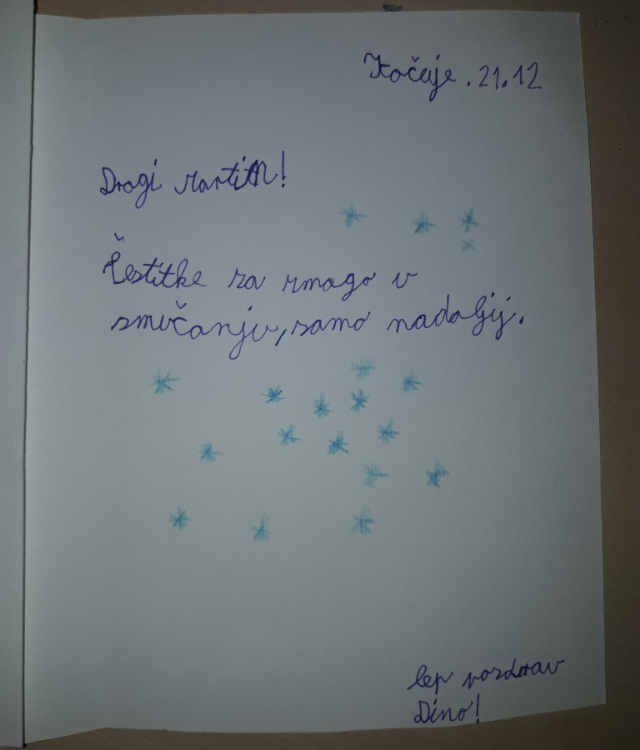 Kočuje.21.12
Dragi Martin!
Čestitke za zmago v
smučanju, samo nadaljij.
lep pozdrav
Dino!